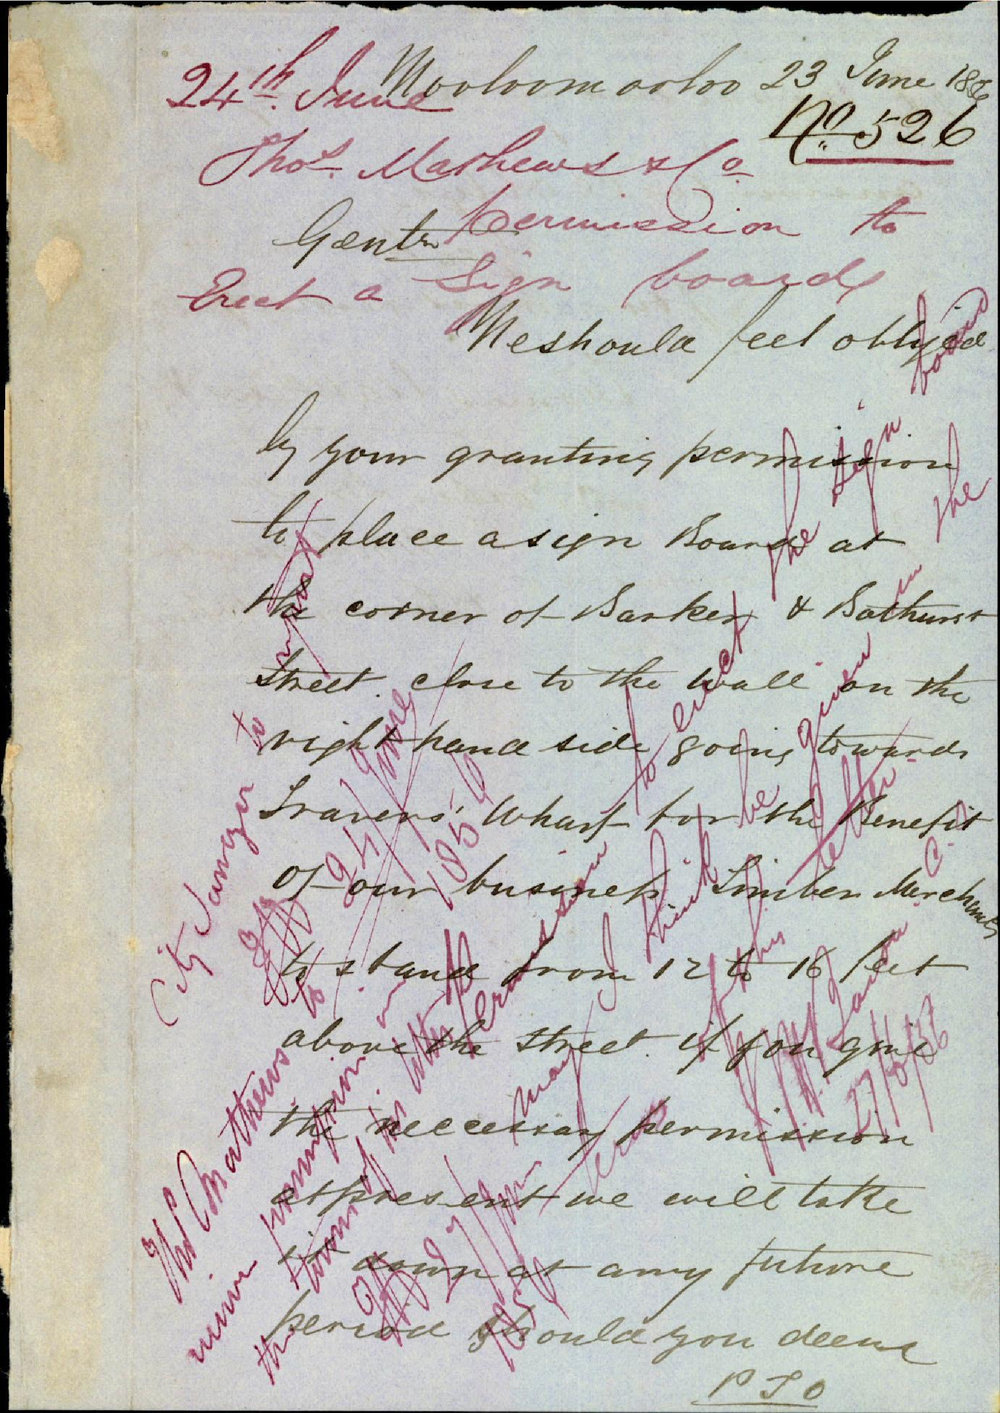 Wooloomooloo 23 June 1856
No 526
24th June
Thos Mathews & Co
permission to
Erect a Sign board
Gentn
We should feel obliged
by your granting permission
to place a sign Board at
the corner of Barker & Bathurst
Street close to the wall on the
right hand side going towards
Travers' Wharf for the Benefit
of our business Timber Merchants
to stand from 12 to 16 feet
above the street. if you give
the necessary permission
at present we will take
it down at any future
period should you deem
P T O
City Survr to
report
24 June
1856
Thos Mathews to
receive permission
the terms of his letter
27 June
1856
Permission to erect the sign board
may I think be given in the
terms of this letter
C. S.
27/6/56